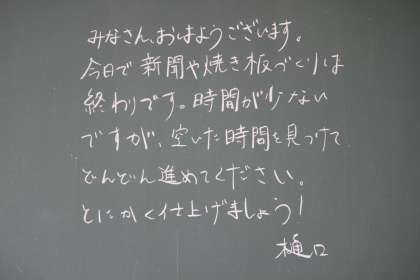 みなさん、おはようございます。
今日で新聞や焼き板づくりは
終わりです。時間が少ない
ですが、空いた時間を見つけて
どんどん進めてください。
とにかく仕上げましょう！
樋口